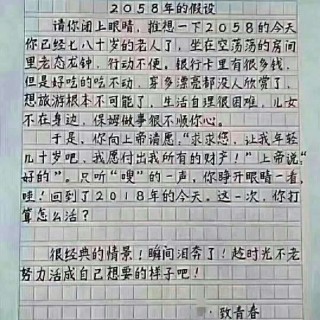 2058年的假设
请你闭上眼睛，推想一下2058的今天
你已经七八十岁的老人了，坐在空荡荡的房间
里老态龙钟，行动不便。银行卡里有很多钱，
但是好吃的吃不动，穿多漂亮都没人欣赏了，
想旅游根本不可能了，生活自理很困难，儿女
不在身边，保姆做事很不顺你心。
于是，你向上帝请愿，“求求您，让我年轻
几十岁吧，我愿付出我所有的财产！”上帝说“
好的”。只听“嗖”的一声，你睁开眼睛一看，
哇！回到了2018年的今天。这一次，你打
算怎么活？
很经典的情景！瞬间泪奔了！趁时光不老
努力活成自己想要的样子吧！
致青春